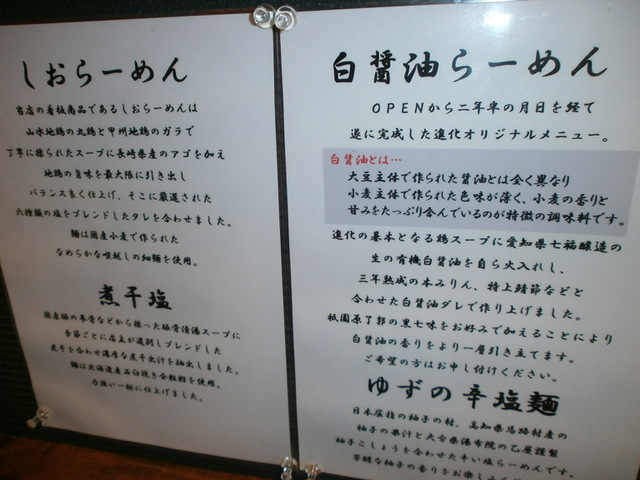 しおらーめん
当店の看板商品であるしおらーめんは
山水地鶏の丸鶏と甲州地鶏のガラで
丁寧に採られたスープに長崎県産のアゴを加え
地鶏の旨味を最大限に引き出し
バランス良く仕上げ、そこに厳選された
六種類の塩をブレンドしたタレを合わせました。
麺は国産小麦で作られた
なめらかな喉越しの細麺を使用。
煮干塩
国産豚の拳骨などから採った豚骨清湯スープに
季節ごとに店主が選別しブレンドした
煮干を合わせ濃厚な煮干出汁を抽出しました。
麺は北海道産石臼挽き全粒粉を使用。
力強い一杯に仕上げました。
白醤油らーめん
OPENから二年半の月日を経て
遂に完成した進化オリジナルメニュー。
白醤油とは…
大豆主体で作られた醤油とは全く異なり
小麦主体で作られた色味が薄く、小麦の香りと
甘みをたっぷり含んでいるのが特徴の調味料です。
進化の基本となる鶏スープに愛知県七福醸造の
生の有機白醤油を自ら火入れし、
三年熟成の本みりん、特上鯖節などと
合わせた白醤油ダレで作り上げました。
祇園原了郭の黒七味をお好みで加えることにより
白醤油の香りをより一層引き立てます。
ご希望の方はお申し付けください。
ゆずの辛塩麺
日本屈指の柚子の村、高知県馬路村産の
柚子の果汁と大分県湯布院の乙屋謹製
柚子こしょうを合わせた辛い塩らーめんです。
芳醇な柚子の香りをお楽しみ